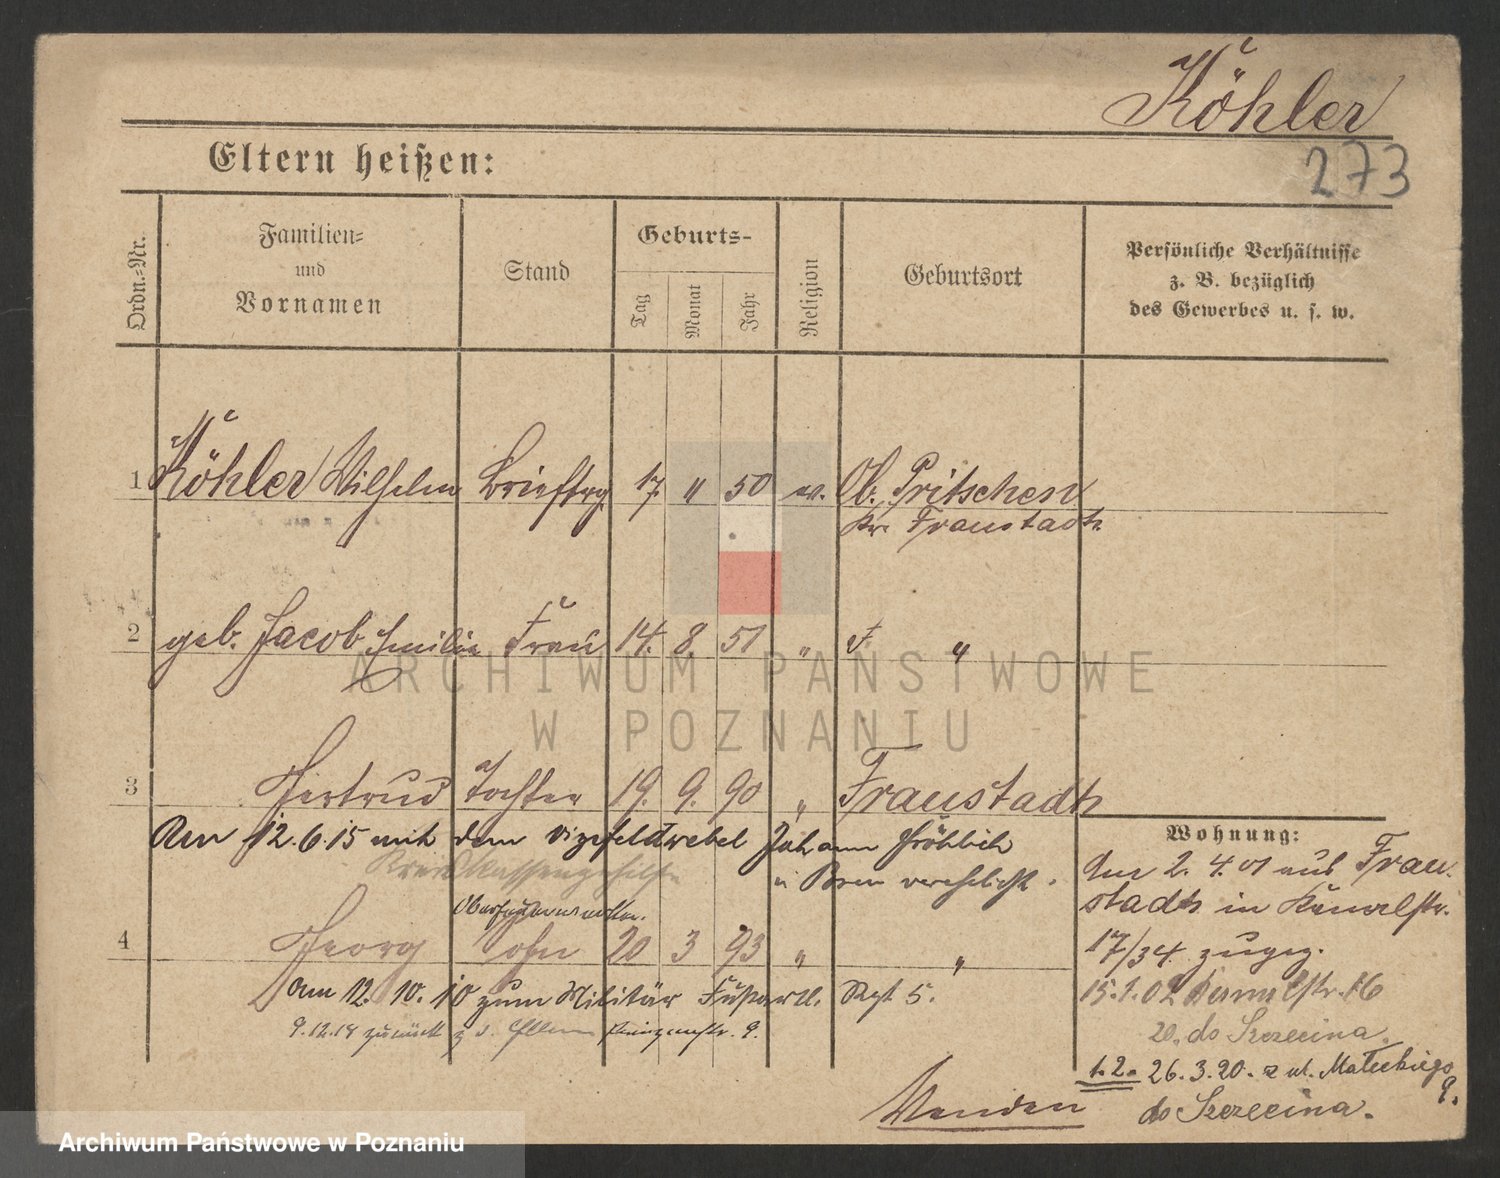 Köhler
273
Eltern heißen:
Ordn.-Nr.
Familien-
und
Vornamen
Stand
Geburts-
Tag
Monat
Jahr
Religion
Geburtsort
Persönliche Verhältnisse
z. B. bezüglich
des Gewerbes u. s. w.
1 Köhler Wilhelm Brieftrg. 17. 11 50 ev. Ob. Pritschen
Kr. Fraustadt
2 geb. Jacob Emilie Frau 14. 8. 51 " F. "
3 Gertrud Tochter 19. 9. 90 " Fraustadt
Am 12.6.15 mit dem Vizefeldwebel Johann Fröhlich
Kreiskassengehilfe
in Posen verehelicht.
4 Georg Sohn 20 3 93 " "
am 12. 10. 10 zum Militär Fußartl. Rgt 5.
9.12.18 zurück z. d. Eltern 9.
Wohnung:
Am 2. 4. 01 aus Frau-
stadt in Kanalstr.
17/34 zugez.
15.1.02 Kanalstr. 16
20. do Szczecina.
1.2. 26.3.20. z ul. Małeckiego
9.
do Szczecina.
Wenden
ARCHIWUM PAŃSTWOWE
W POZNANIU
Archiwum Państwowe w Poznaniu